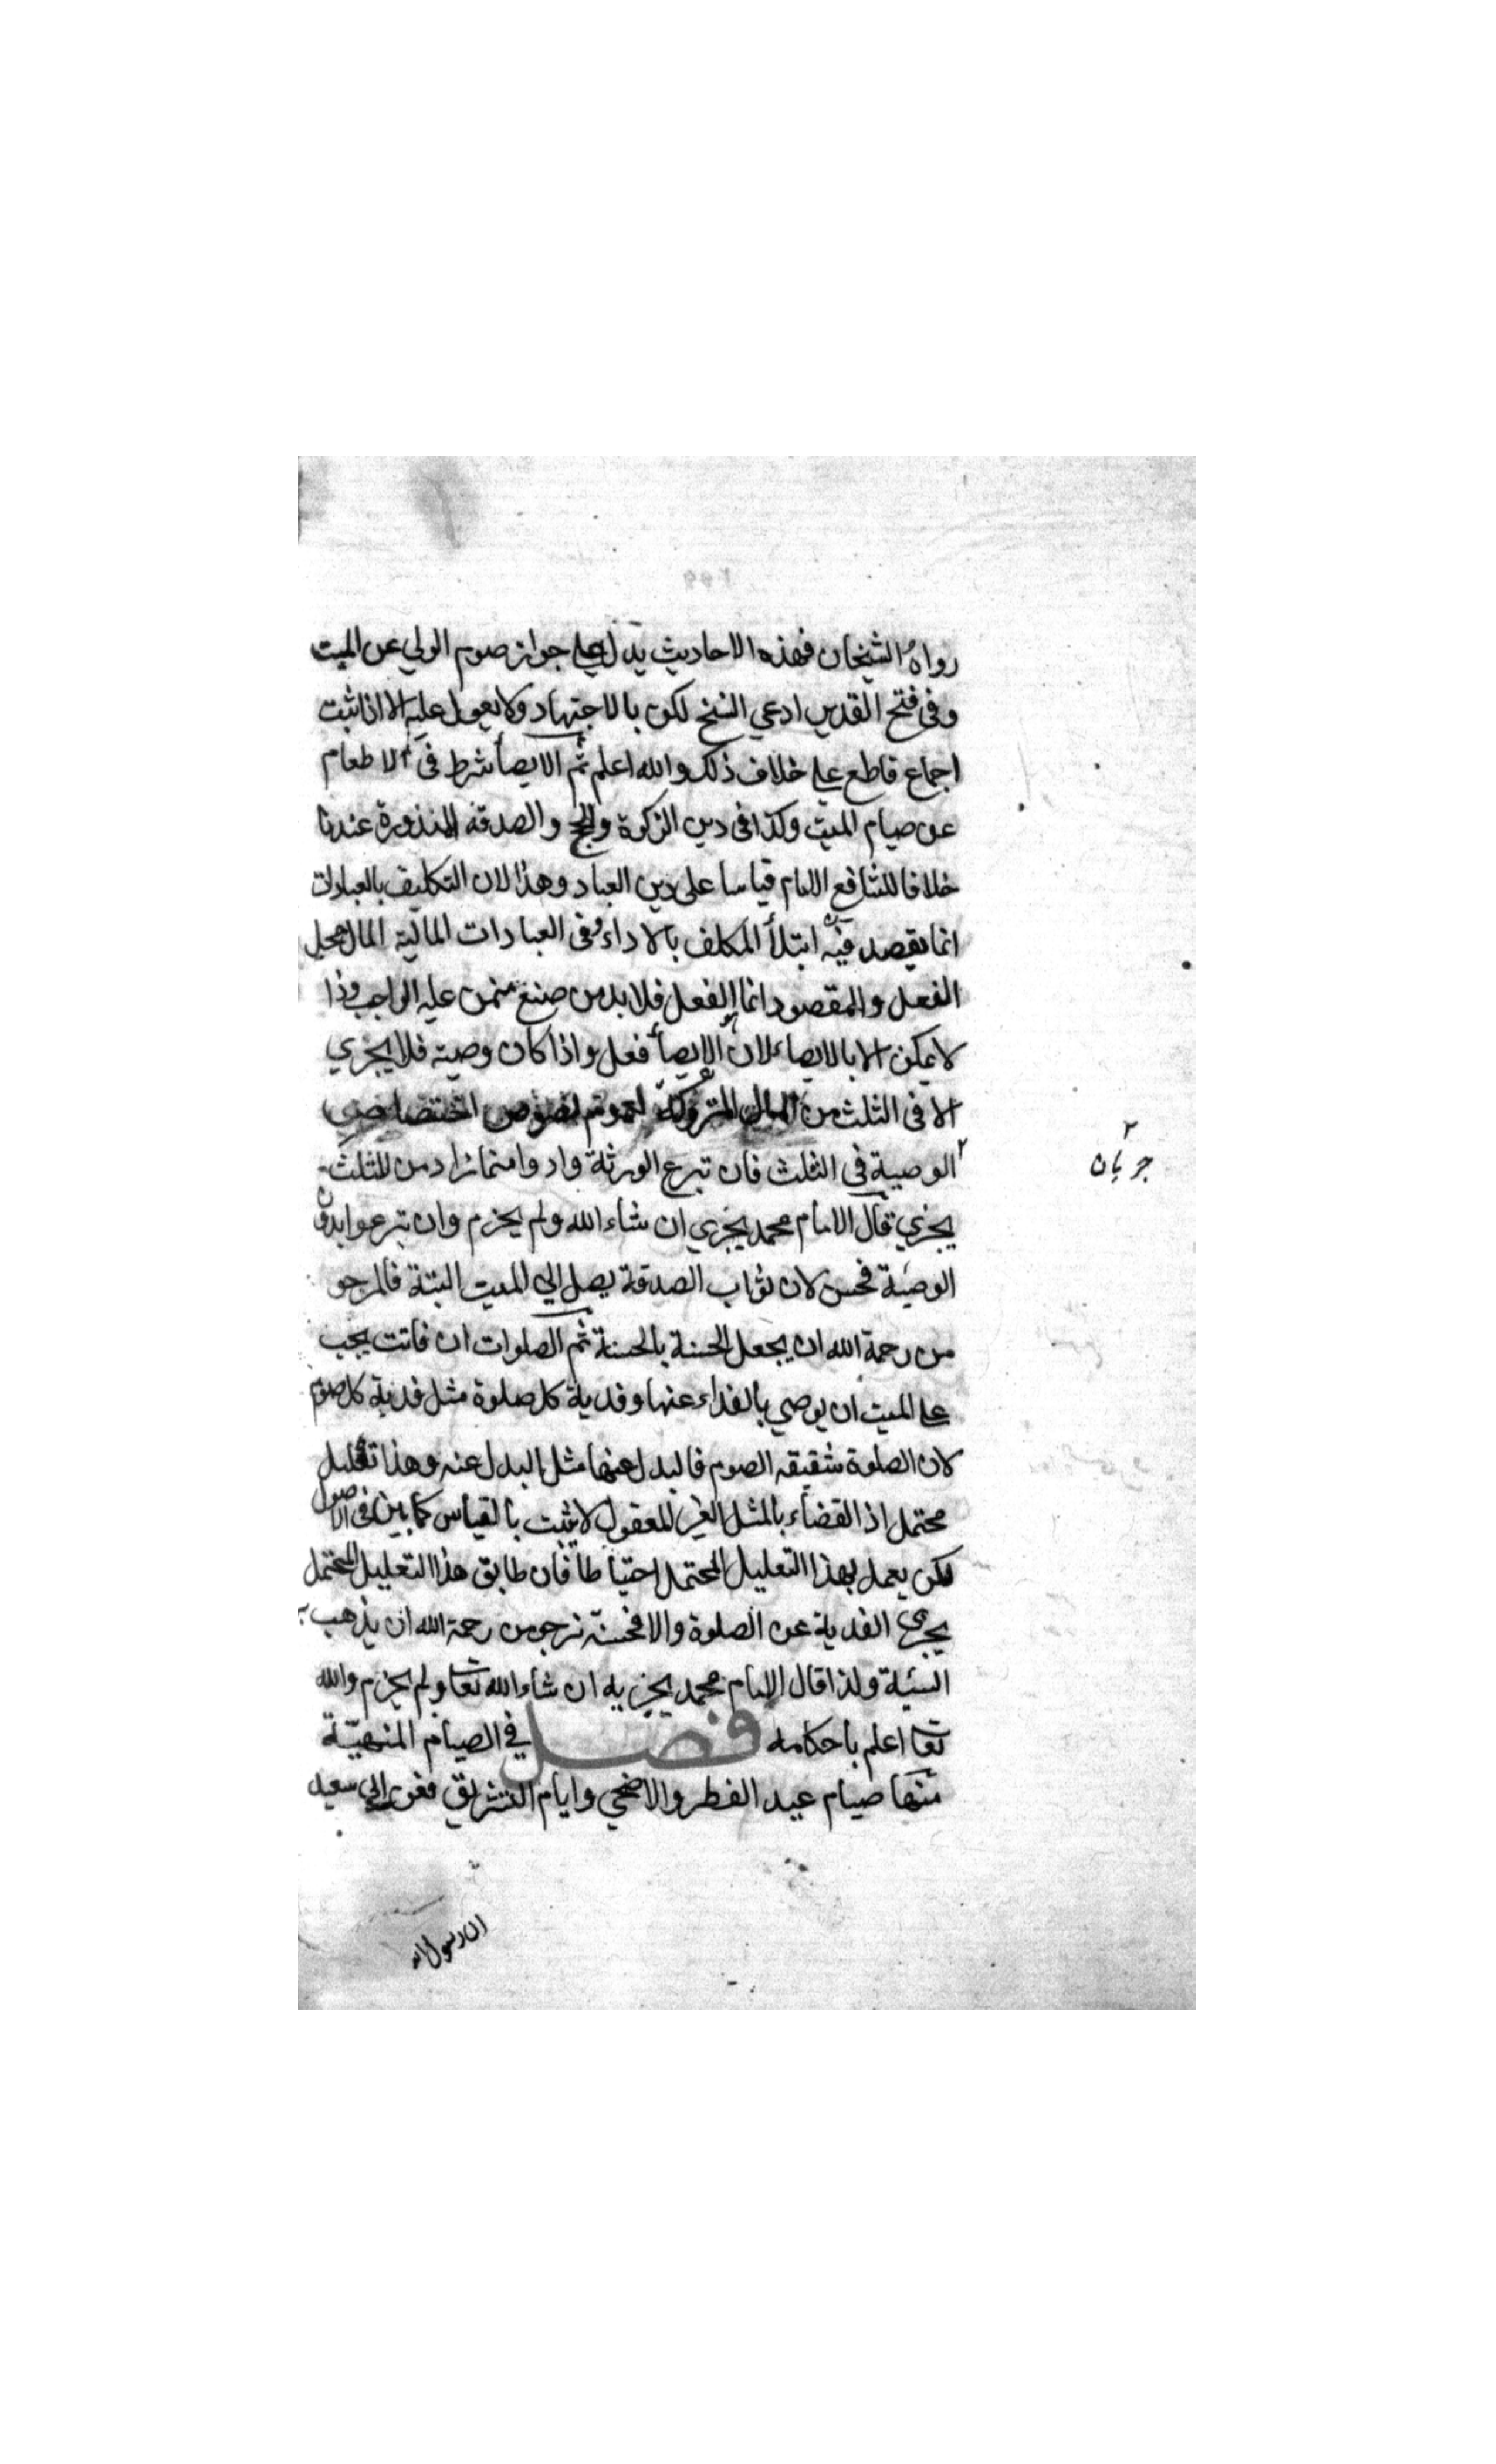 رواه الشيخان فهذه الاحاديث يدل علي جواز صوم الولي عن الميت
وفي فتح القدير ادعي النسخ لكن بالاجتهاد ولا يعول عليه الا اذا ثبت
اجماع قاطع علي خلاف ذلك والله اعلم ثم الايصأ شرط في الاطعام
عن صيام الميت وكذا في دين الزكوة والحج والصدقة المنذورة عندنا
خلافا للشافع الامام قياسا على دين العباد وهذا لان التكليف بالعبادات
انما يقصد فيه ابتلأ المكلف بالاداء وفي العبادات المالية المال محل
الفعل والمقصود انما الفعل فلا بد من صنع ممن عليه الواجب وذا
لا يمكن الا بالايصاء لان الايصأ فعل واذا كان وصية فلا يجزي
الا في الثلث من المال المتروكة لعموم نصوص اختصاص
الوصية في الثلث فان تبرع الورثة وادوا مما زاد من الثلث
يجزي قال الامام محمد يجزي ان شاء الله ولم يجزم وان تبرعوا بدون
الوصية فحسن لان ثواب الصدقة يصل الي الميت البتة فالمرجو
من رحمة الله ان يجعل الحسنة بالحسنة ثم الصلوات ان فاتت يجب
علي الميت ان يوصي بالفداء عنها وفدية كل صلوة مثل فدية كل صوم
لان الصلوة شقيقه الصوم فالبدل عنها مثل البدل عنه وهذا تعليل
محتمل اذ القضاء بالمثل الغير المعقول لا يثبت بالقياس كما بين في الاصول
لكن يعمل بهذا التعليل المحتمل احتياطا فان طابق هذا التعليل المحتمل
يجزي الفدية عن الصلوة والا فحسنة نرجو من رحمة الله ان يذهب به
السيئة ولذا قال الامام محمد يجزيه ان شاء الله تعا ولم يجزم والله
تعا اعلم باحكامه فصل في الصيام المنهية
منها صيام عيد الفطر والاضحي وايام التشريق فعن ابي سعيد
ان رسول الله
٢
جريان